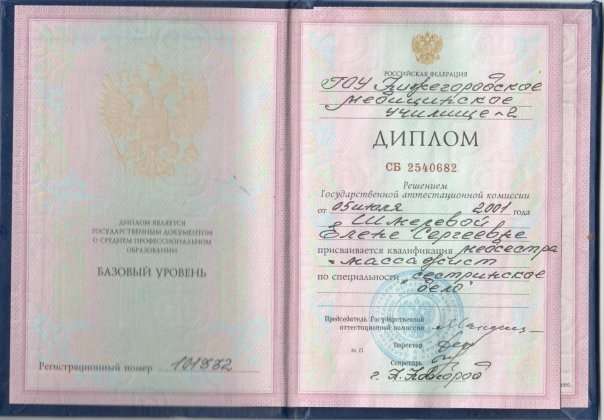 ДИПЛОМ ЯВЛЯЕТСЯ
ГОСУДАРСТВЕННЫМ ДОКУМЕНТОМ
О СРЕДНЕМ ПРОФЕССИОНАЛЬНОМ
ОБРАЗОВАНИИ
БАЗОВЫЙ УРОВЕНЬ
Регистрационный номер
РОССИЙСКАЯ ФЕДЕРАЦИЯ
ГОУ Нижегородское
медицинское
училище-2
ДИПЛОМ
СБ 2540682
Решением
Государственной аттестационной комиссии
от 05 июля 2001 года
Елене Сергеевне
присваивается квалификация медсестра
массажист
по специальности "сестринское
дело"
Председатель Государственной
аттестационной комиссии
М.П.
Директор
Секретарь
г. Н.Новгород